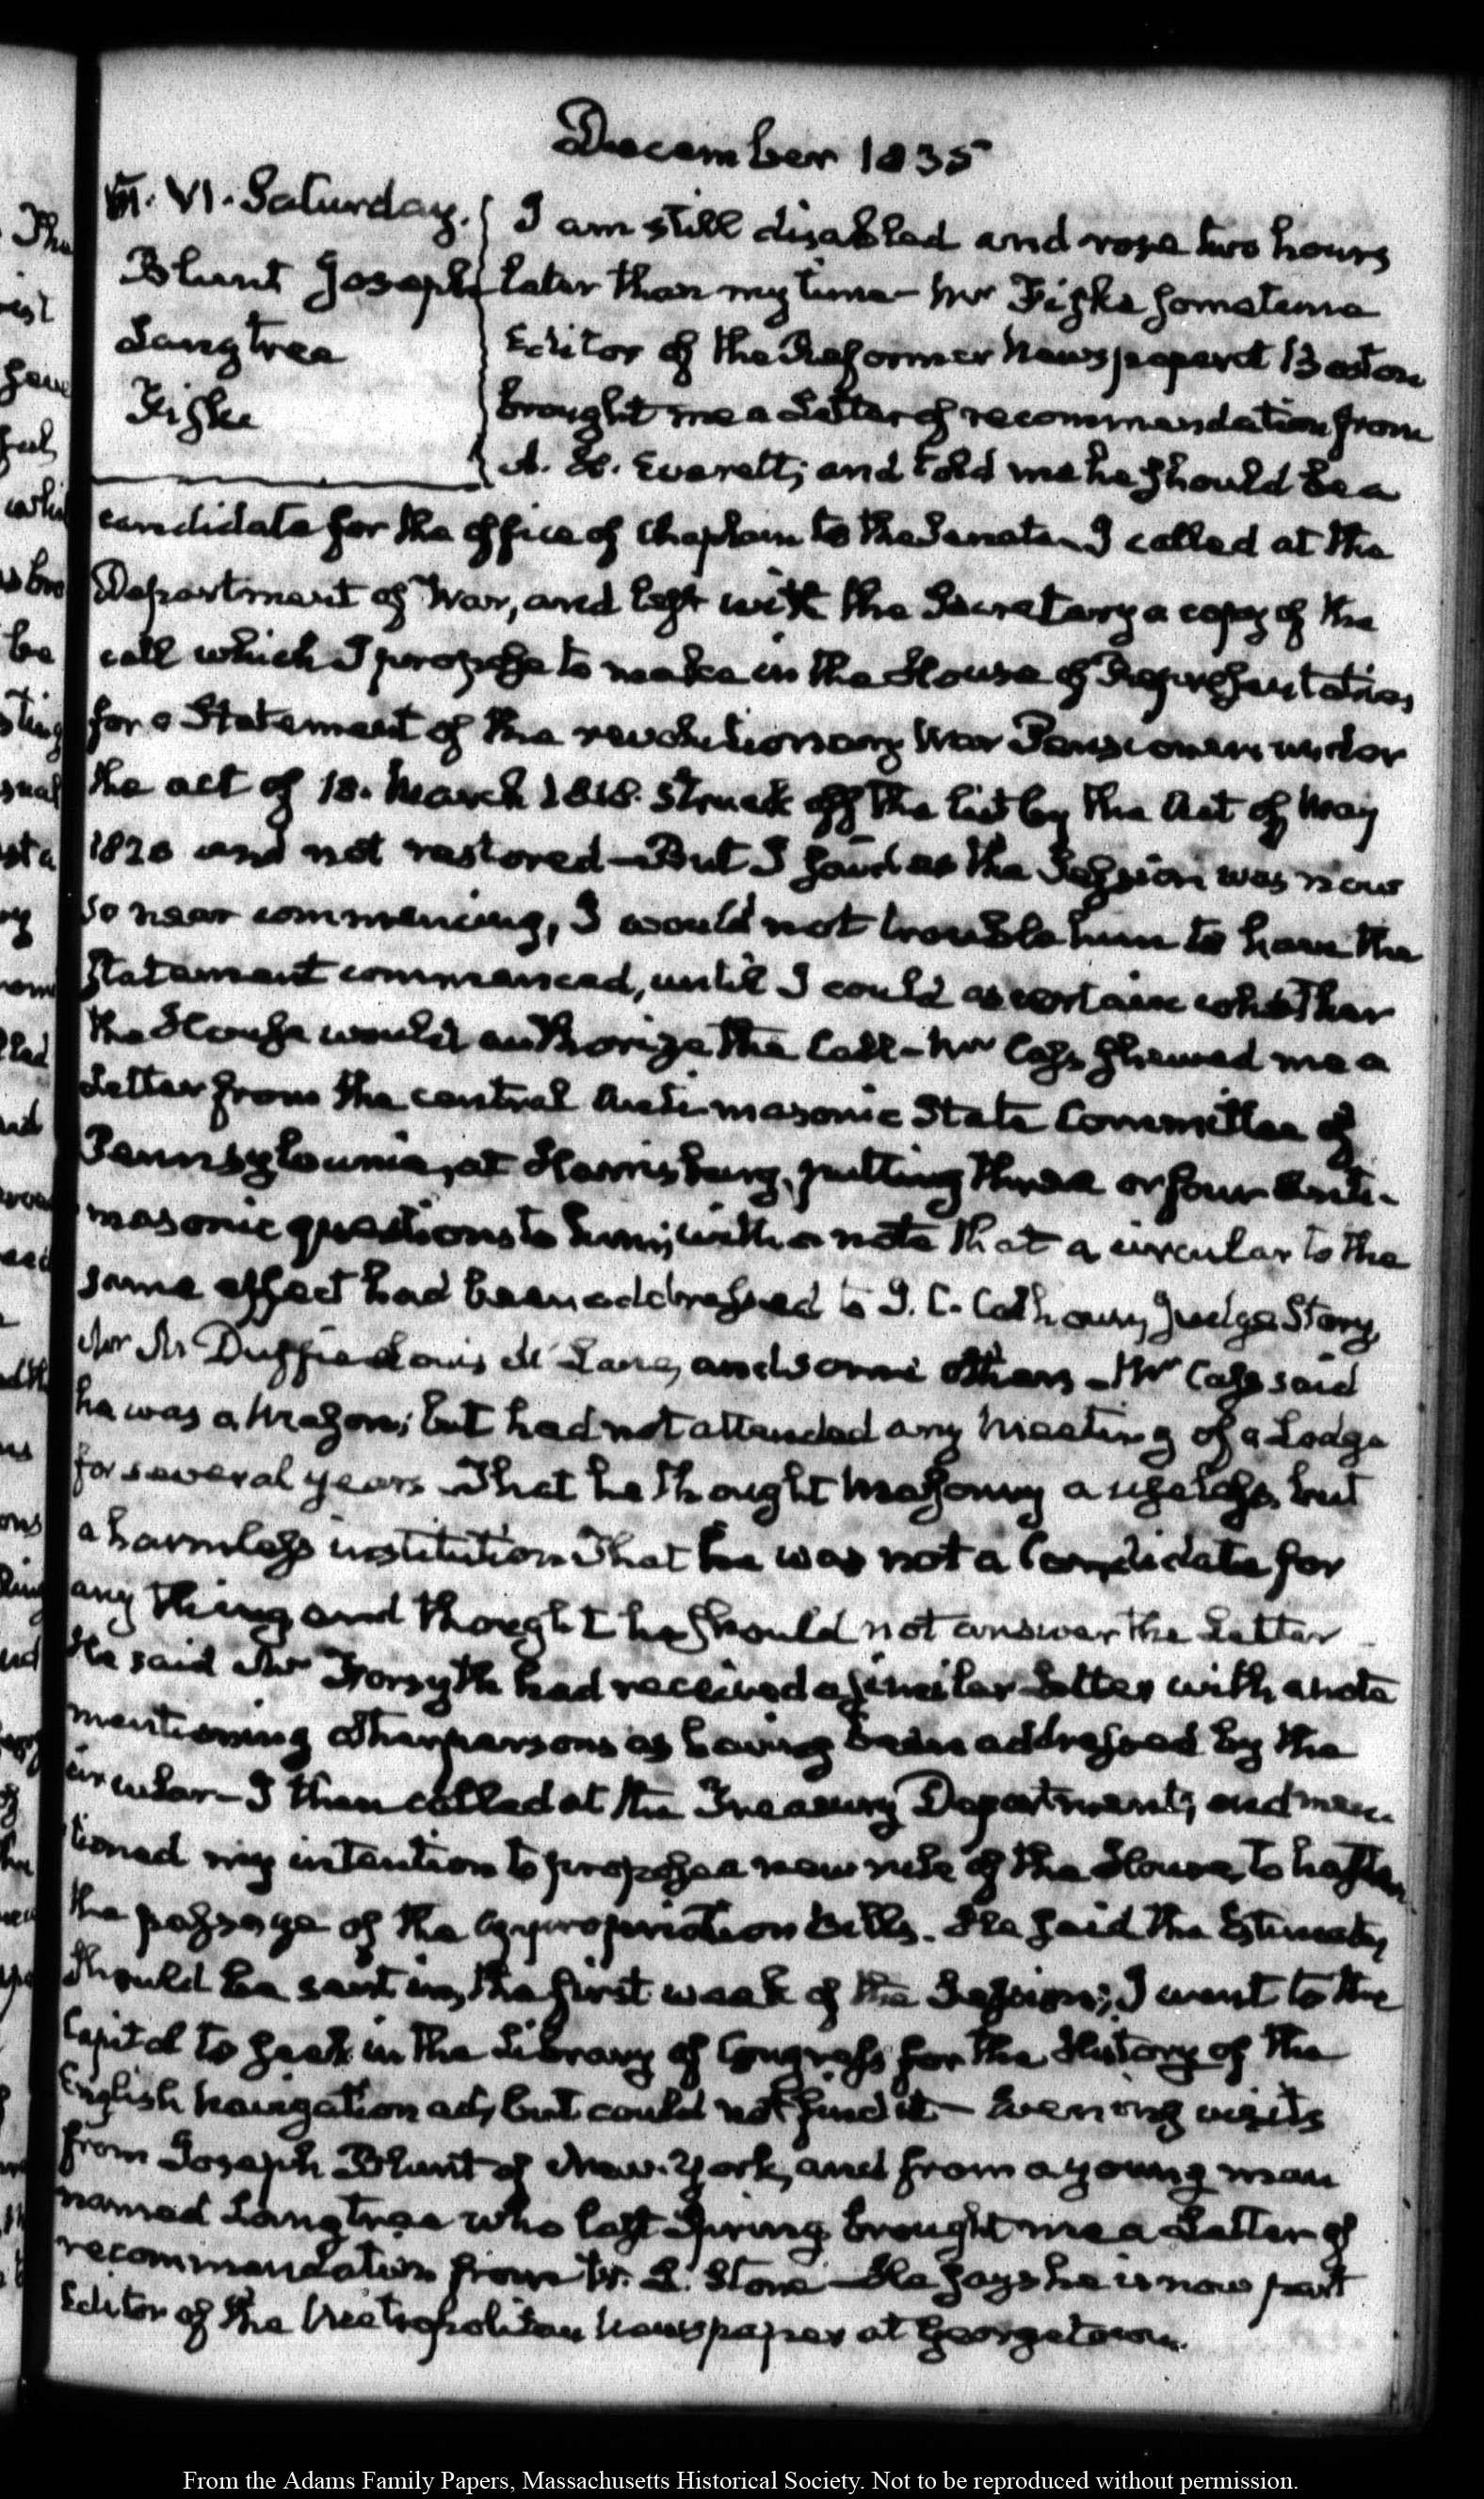 December 1835
VI. Saturday.
Blunt Joseph
Langtree
Fiske
I am still disabled and rose two hours
later than my time - Mr Fiske sometime
Editor of the Reformer Newspaper at Boston
brought me a Letter of recommendation from
A. H. Everett; and told me he should be a
candidate for the office of Chaplain to the Senate - I called at the
Department of War, and left with the Secretary a copy of the
call which I propose to make in the House of Representatives
for a Statement of the revolutionary War Pensioners under
the act of 18. March 1818. struck off the list by the Act of May
1820 and not restored - But I said as the Session was now
so near commencing, I would not trouble him to have the
Statement commenced, until I could ascertain whether
the House would authorize the Call - Mr Cass shewed me a
Letter from the central Anti-masonic State Committee of
Pennsylvania, at Harrisburg, putting three or four Anti-
masonic questions to him; with a note that a circular to the
same effect had been addressed to J. C. Calhoun, Judge Story,
Mr Mc Duffie Louis Mc Lane, and some others - Mr Cass said
he was a Mason; but had not attended any Meeting of a Lodge
for several years - That he thought Masonry a useless, but
a harmless institution - That he was not a Candidate for
any thing, and thought he should not answer the Letter -
He said Mr Forsyth had received a similar Letter with a note
mentioning other persons as having been addressed by the
circular - I then called at the Treasury Department; and men-
tioned my intention to propose a new rule of the House, to hasten
the passage of the appropriation Bills. He said the Estimates
should be sent in, the first week of the Session; I went to the
Capitol to seek in the Library of Congress for the History of the
English Navigation act, but could not find it - Evening visits
from Joseph Blunt of New-York, and from a young man
named Langtree who last Spring brought me a Letter of
recommendation from W. L. Stone - He says he is now part
Editor of the Metropolitan Newspaper at Georgetown.
From the Adams Family Papers, Massachusetts Historical Society. Not to be reproduced without permission.